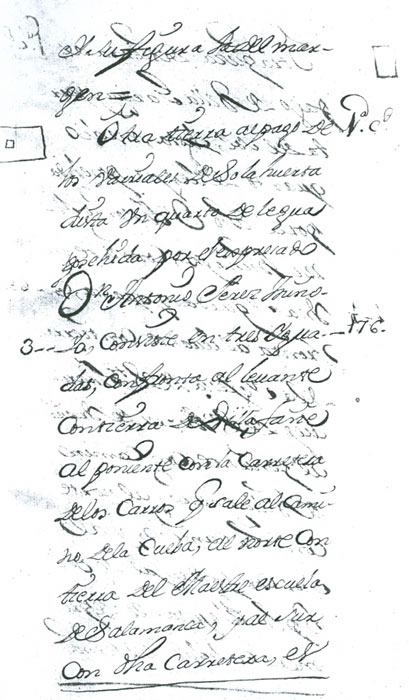 Y su figura la del mar-
gen =
Otra tierra al pago de
los Parrales de Sola huerta
dista un quarto de legua
por el expresado
Dn Antonio Perez Muño-
3 - - za, Consiste en tres Ygua- - 176.
das, confronta al levante
Con tierra de
al poniente con la Carretera
de los Carros q sale al Cami-
no de la Cueba, al norte Con
tierra del Maestre escuela
de Salamanca, y al Sur
Con dha Carretera, Y